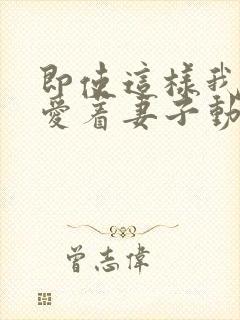 即使這樣我
愛着妻子動
曾志偉